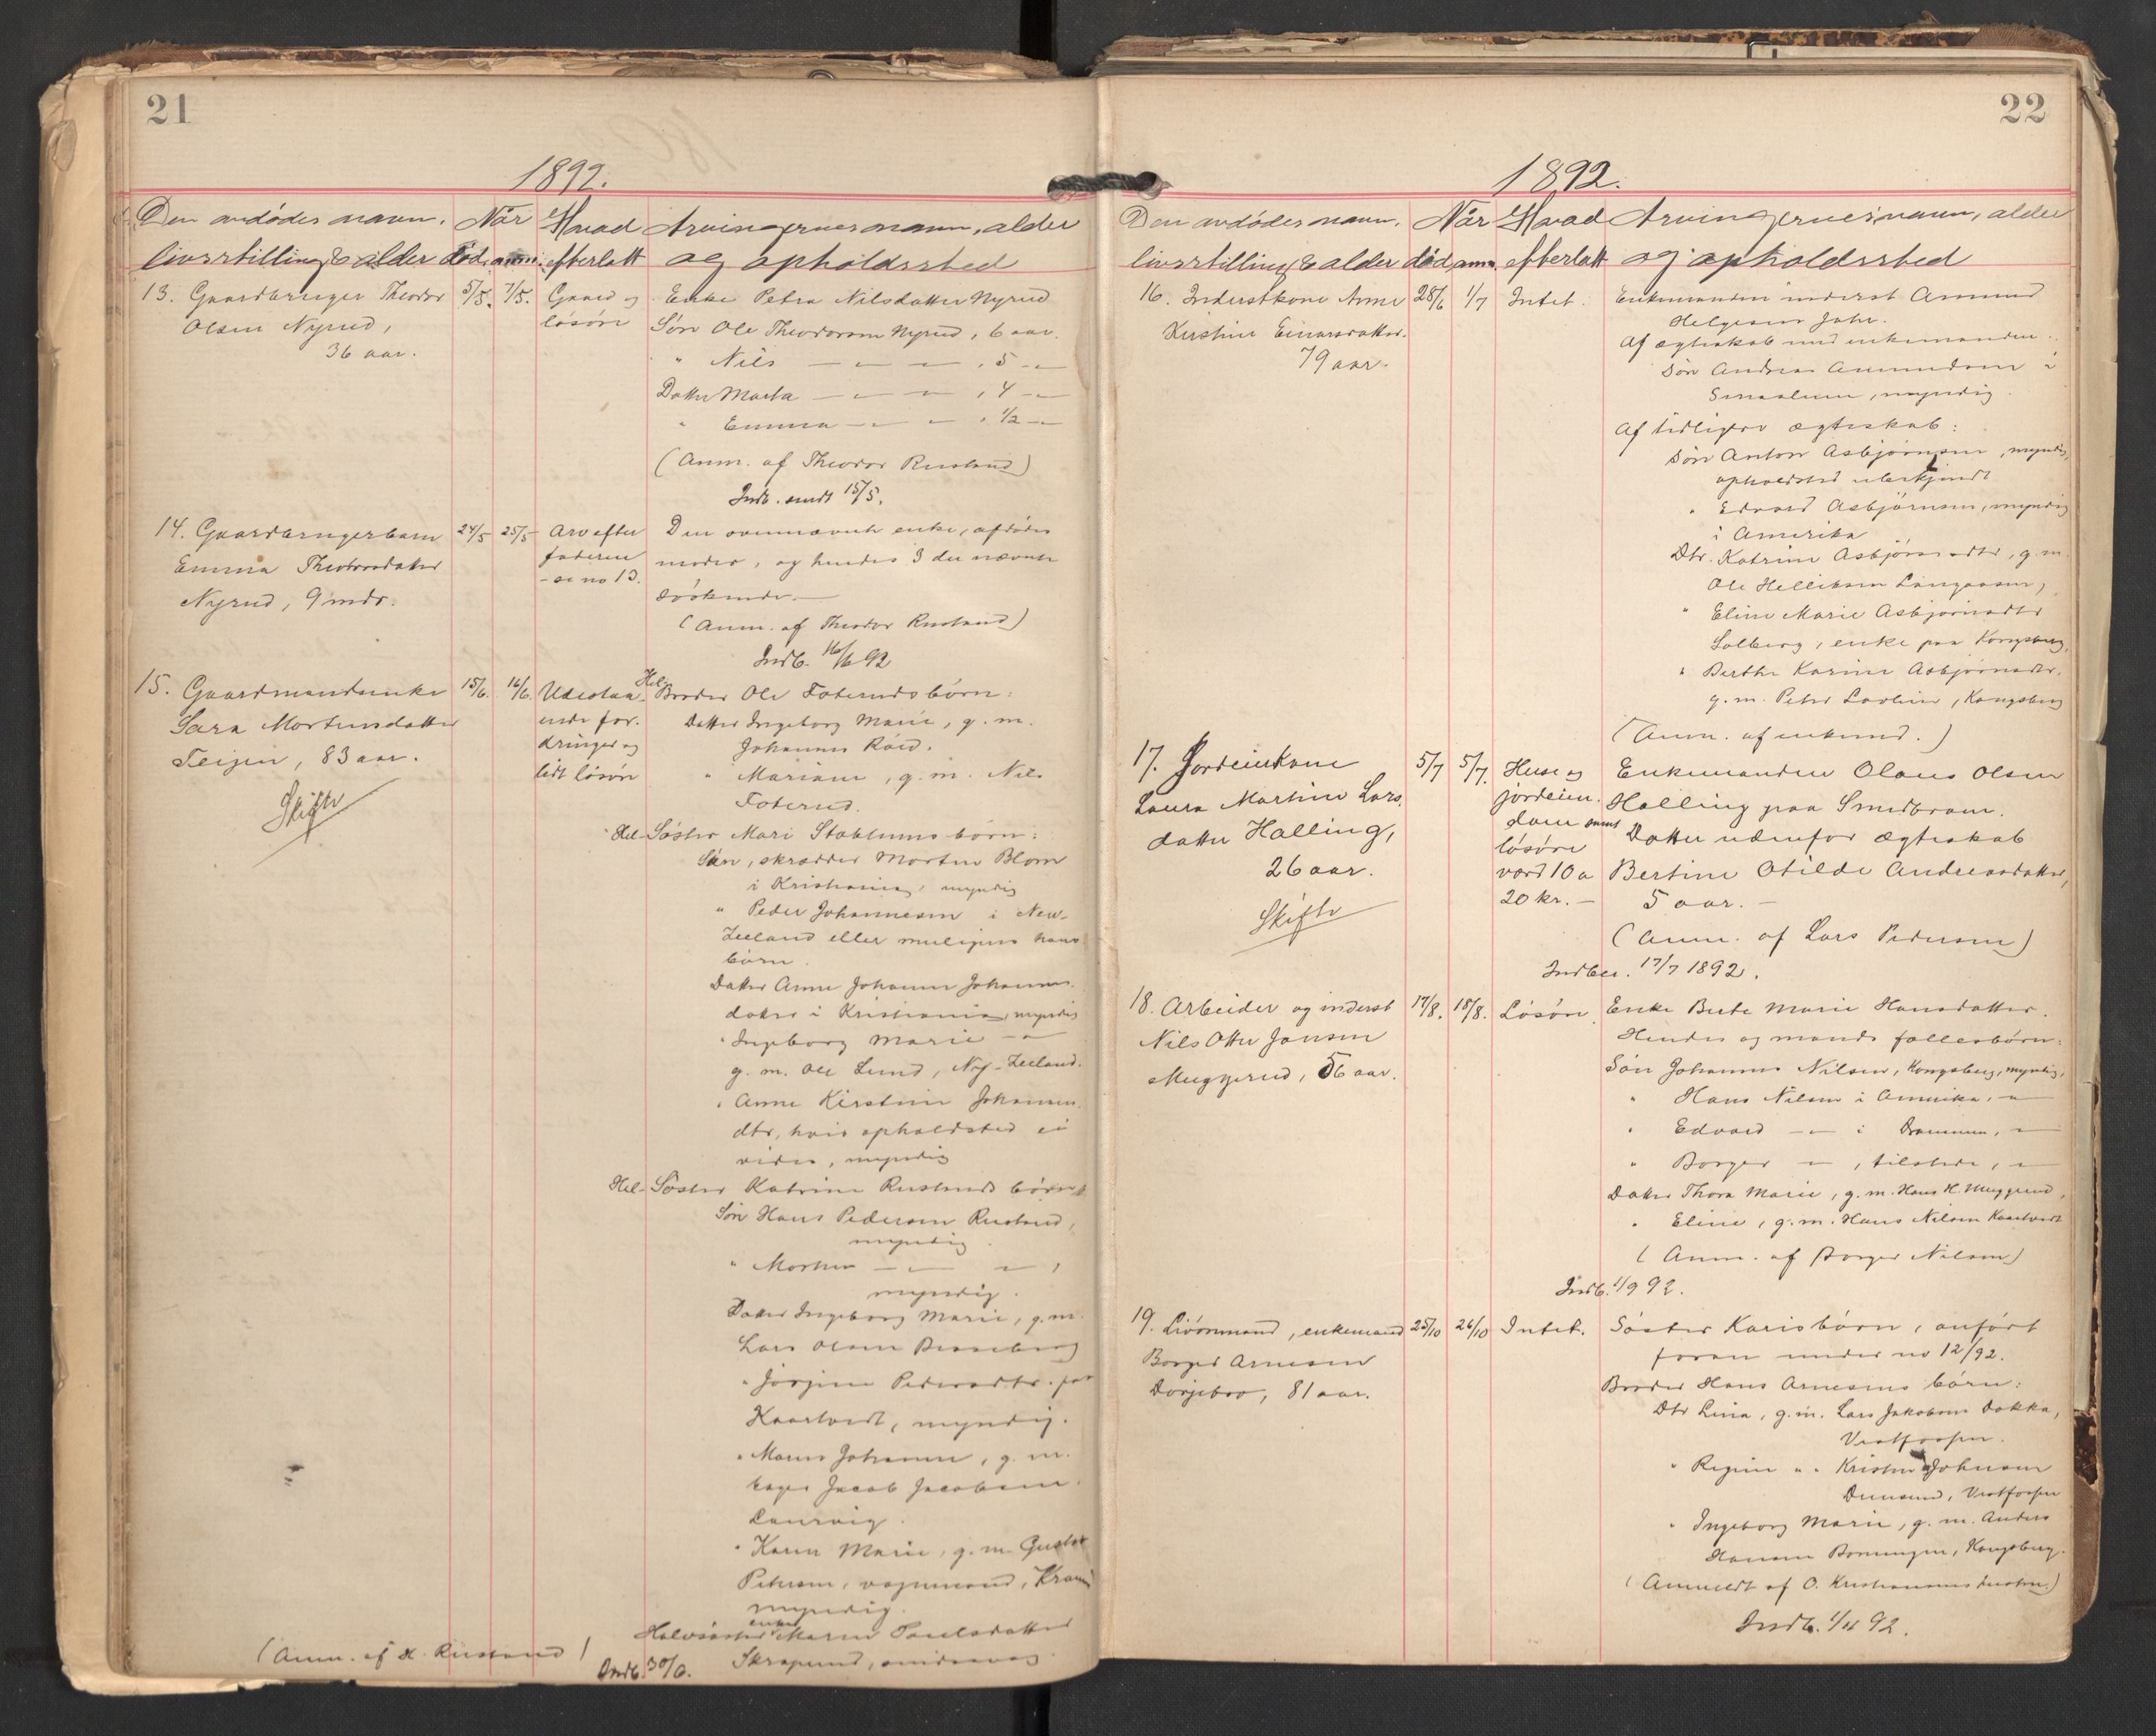 21
1892.
Den avdødes navn, Når Hvad Arvingernes navn, alder
livsstilling & alder død anm. efterlatt og opholdssted
13. Gaardbruger Theodor 5/5. 7/5. Gaard og Enke Petra Nilsdatter Nyrud
Olsen Nyrud, løsøre Søn Ole Theodorsen Nyrud, 6 aar.
36 aar. " Nils — " — " — , 5 — " —
Datter Marta — " — " — , 4 — " —
" Emma — " — " — , 1/2 — " —
(Anm. af Theodor Rustand)
Indb. sendt 15/5.
14. Gaardbrugerbarn 24/5 25/5 Arv efter Den ovennævnte enke, afdødes
Emma Theodorsdatter faderen moder, og hendes 3 der nævnte
Nyrud, 9 mdr. – se no 13. søskende. —
(Anm. af Theodor Rustand)
Indb. 16/6 92
15. Gaardmandsenke 15/6. 16/6. Udestaa- Hel- Broder Ole Foterudsbørn:
Sara Mortensdatter ende for- Datter Ingeborg Marie, g. m.
Teigen, 83 aar. dringer og Johannes
Skifte lidt løsøre " Mariane, g. m. Nils
Foterud.
Hel- Søster Mari Stablums børn:
Søn, skrædder Morten Blom
i Kristiania, myndig
" Peder Johannesen i New-
Zeeland eller muligens hans
børn.
Datter Anne Johanne Johannes-
datter i Kristiania, myndig
" Ingeborg Marie — " —
g. m. Ole Lund, Ny-Zeeland.
" Anne Kirstine Johannes-
dtr, hvis opholdsted ei
vides, myndig
Hel- Søster Katrine Rustands børn:
Søn Hans Pedersen Rustand,
myndig
" Morten — " — " — ,
myndig.
Datter Ingeborg Marie, g. m.
Lars Olsen
" Jørgine Pedersdtr. paa
Kaartvedt, myndig.
" Maren Johanne, g. m.
bager Jacob Jacobsen
Laurvig.
" Karen Marie, g. m. Gustav
Petersen, vognmand,
myndig.
Halvsøster enke Maren Paulsdatter
(Anm. af H. Rustand) Indb. 30/6.
22
1892.
Den avdødes navn, Når Hvad Arvingernes navn, alder
livsstilling & alder død, anm. efterlatt og opholdssted
16. Inderstkone Anne 28/6 1/7 Intet. Enkemanden inderst Amund
Kirstine Einarsdatter. Helgesen Jahr.
79 aar. Af ægteskab med enkemanden:
Søn Andreas Amundsen i
Smaalene, myndig.
Af tidligere ægteskab:
Søn Anton Asbjørnsen, myndig,
opholdsted ubekjendt
" Edvard Asbjørnsen, myndig
i Amerika
Dtr. Katrine Asbjørnsdtr, g. m.
Ole Helliksen Langaasen,
" Eline Marie Asbjørnsdtr
Solberg, enke paa Kongsberg,
" Berthe Karine Asbjørnsdtr.
g. m. Peter, Kongsberg
(Anm. af enkemd.)
17. Jordeierkone 5/7 5/7. Huse og Enkemanden Olaus Olsen
Laura Martine Lars- jordeien- Halling paa Smedbraam.
datter Halling, dom samt Datter udenfor ægteskab
26 aar. løsøre Bertine Otilde Andreasdatter,
Skifte værd 10 a 5 aar. —
20 kr. — (Anm. af Lars Pedersen)
Indber. 17/7 1892.
18. Arbeider og inderst 17/8. 18/8. Løsøre. Enke Berte Marie Hansdatter.
Nils Otter Jansen Hendes og mands fællesbørn:
Muggerud, 56 aar. Søn Johannes Nilsen, Kongsberg, myndig,
" Hans Nilsen i Amerika, — " —
" Edvard — " — i Drammen, — " —
" Borger — " — , tilstede, — " —
Datter Thora Marie, g. m. Hans H. Muggerud,
" Eline, g. m. Hans Nilsen Kaartvedt
(Anm. af Borger Nilsen)
Indb. 1/9 92.
19. Livørmand, enkemand 25/10 26/10 Intet. Søster Karis børn, anført
Borger Arnesen foran under no 12/92.
Dorjebro, 81 aar. Broder Hans Arnesens børn:
Dtr Lina, g. m. Lars Jakobsen Dokka,
Vestfossen.
" Regine " " Kristen Johnsen
Vestfossen
" Ingeborg Marie, g. m. Anders
Hansen, Kongsberg.
(Anmeldt af O. Kristiansens hustru.)
Indb. 1/11 92.